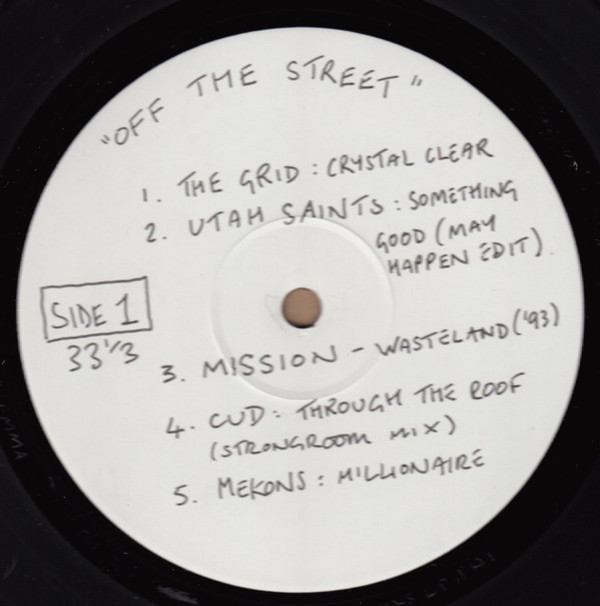 "OFF THE STREET"
1. THE GRID : CRYSTAL CLEAR
2. UTAH SAINTS : SOMETHING
GOOD (MAY
HAPPEN EDIT)
SIDE 1
33 1/3
3. MISSION - WASTELAND ('93)
4. CUD : THROUGH THE ROOF
(STRONGROOM MIX)
5. MEKONS : MILLIONAIRE